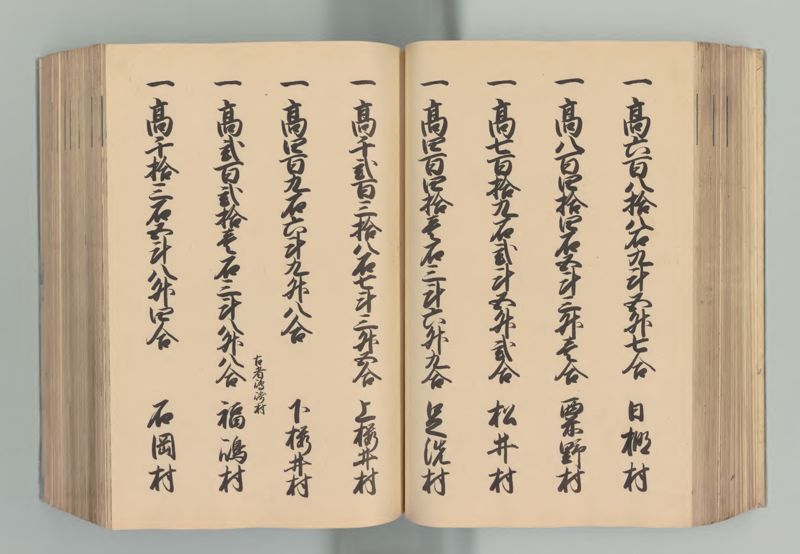 一 高六百八拾八石九斗五升七合 日棚村
一 高八百四拾四石五斗三升壱合 粟野村
一 高七百拾九石弐斗五升弐合 松井村
一 高四百四拾壱石三斗六升九合 足洗村
一 高千弐百三拾八石七斗三升五合 上櫻井村
一 高四百九石六斗九升八合 下櫻井村
一 高弐百弐拾壱石三斗八升八合 福嶋村
古者 村
一 高千拾三石五斗八升四合 石岡村